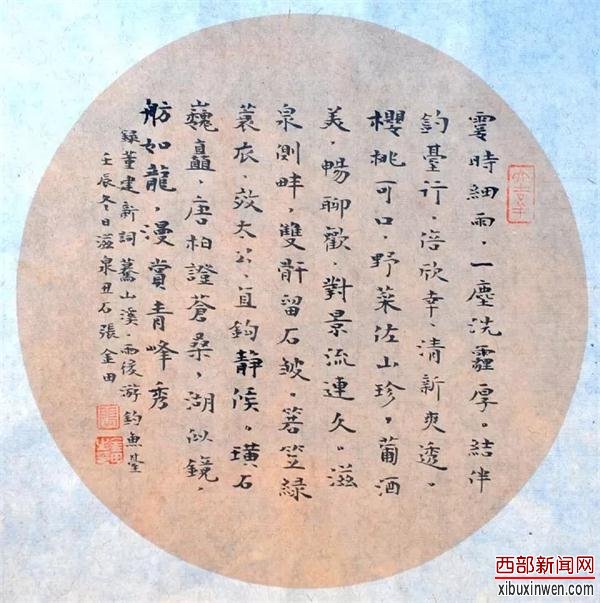 霎時細雨，一塵洗霾厚。結伴
釣臺行，倍欣幸、清新爽透。
櫻桃可口，野菜佐山珍，葡酒
美，暢聊歡，對景流連久。滋
泉側畔，雙骭留石皴。箬笠綠
蓑衣，效太公、直鈎靜候。璜石
巍矗，唐柏證蒼桑，湖似鏡，
舫如龍，漫賞青峰秀
錄董建新詞驀山溪·雨後游釣魚臺
壬辰冬日滋泉丑石張金田
西部新闻网
xibuxinwen.com